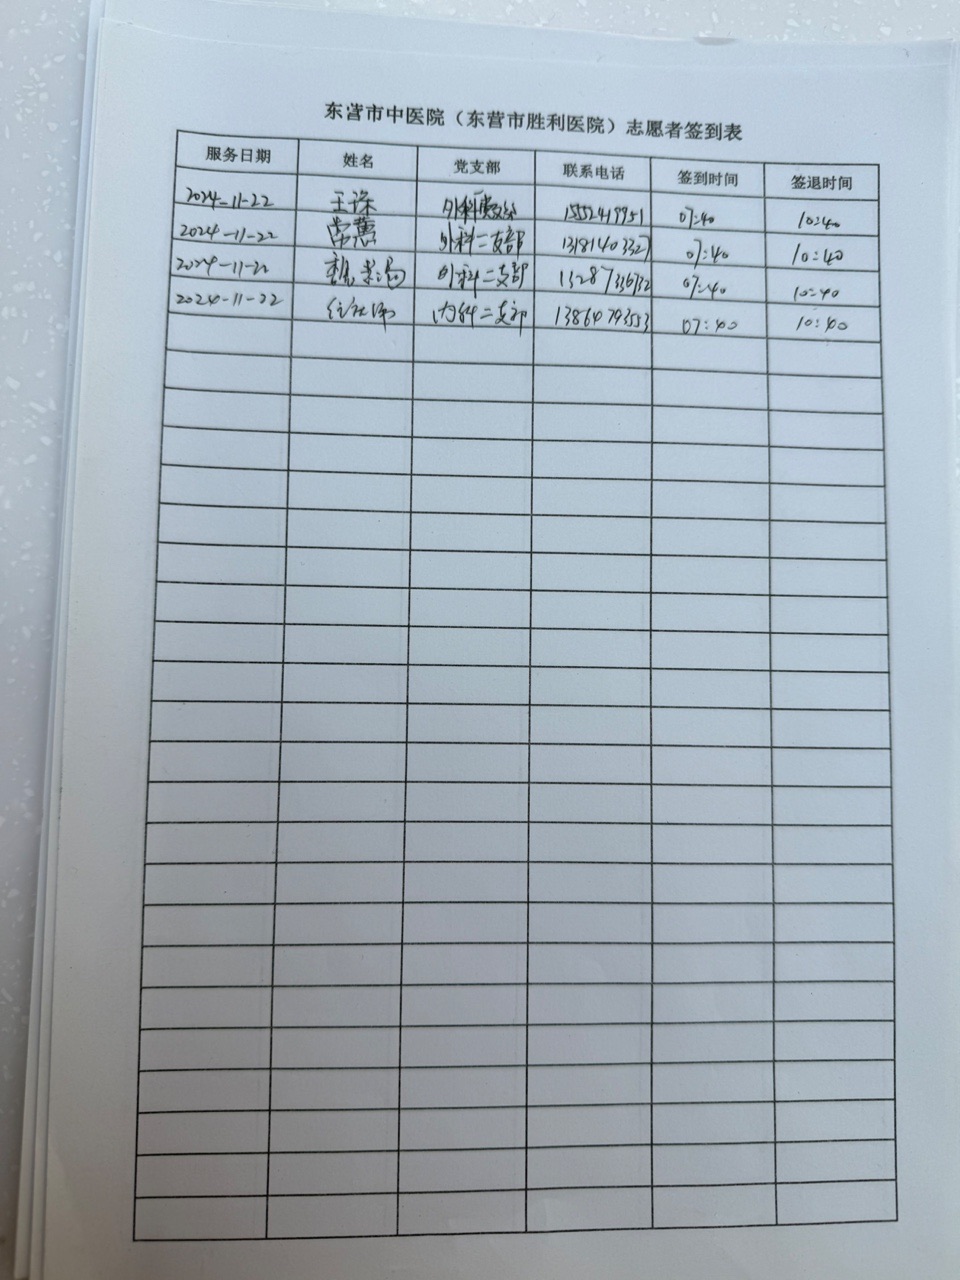 东营市中医院（东营市胜利医院）志愿者签到表
服务日期 姓名 党支部 联系电话 签到时间 签退时间
2024-11-22 王 外科 15552419951 07:40 10:40
2024-11-22 常慧 外科二支部 13181403327 07:40 10:40
2024-11-22 外科二支部 13287336732 07:40 10:40
2024-11-22 内科二支部 13864793553 07:40 10:40